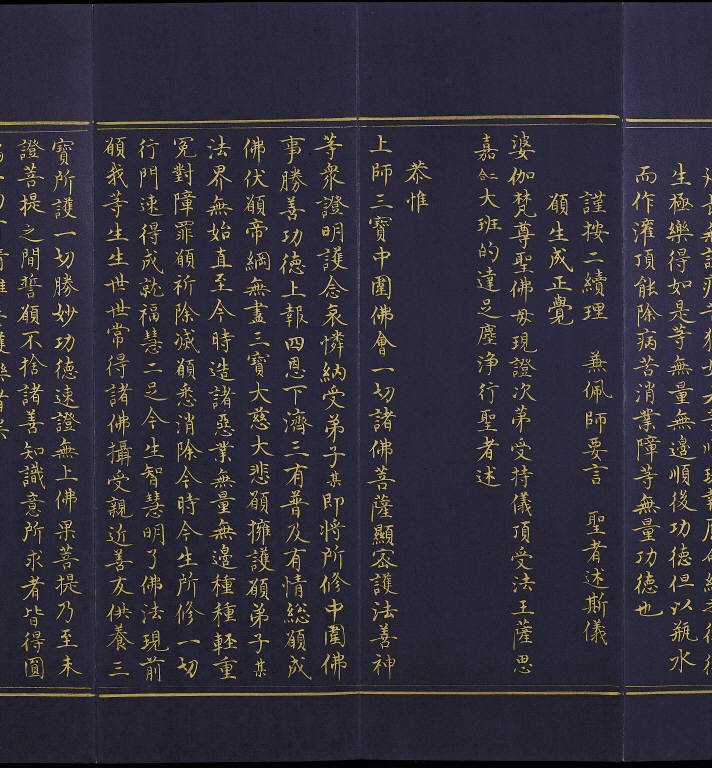 生極樂得如是等無量無邉順後功德但以瓶水
而作灌頂能除病苦消業障等無量功德也
謹按二續理　蕪佩師要言　聖者述斯儀
願生成正覺
婆伽梵尊聖佛母現證次苐受持儀頂受法王薩思
嘉仁大班的達足塵浄行聖者述
恭惟
上師三寶中圍佛會一切諸佛菩薩顯宻護法善神
等衆證明護念哀憐納受弟子某即將所修中圍佛
事勝善功德上報四恩下濟三有普及有情総願成
佛伏願帝綱無盡三寶大慈大悲願擁護願弟子某
法界無始直至今時造諸惡業無量無邉種種輕重
冤對障罪願祈除滅願悉消除今時今生所修一切
行門速得成就福慧二足今生智慧明了佛法現前
願我等生生世世常得諸佛攝受親近善友供養三
寶所護一切勝妙功德速證無上佛果菩提乃至未
證菩提之間誓願不捨諸善知識意所求者皆得圓